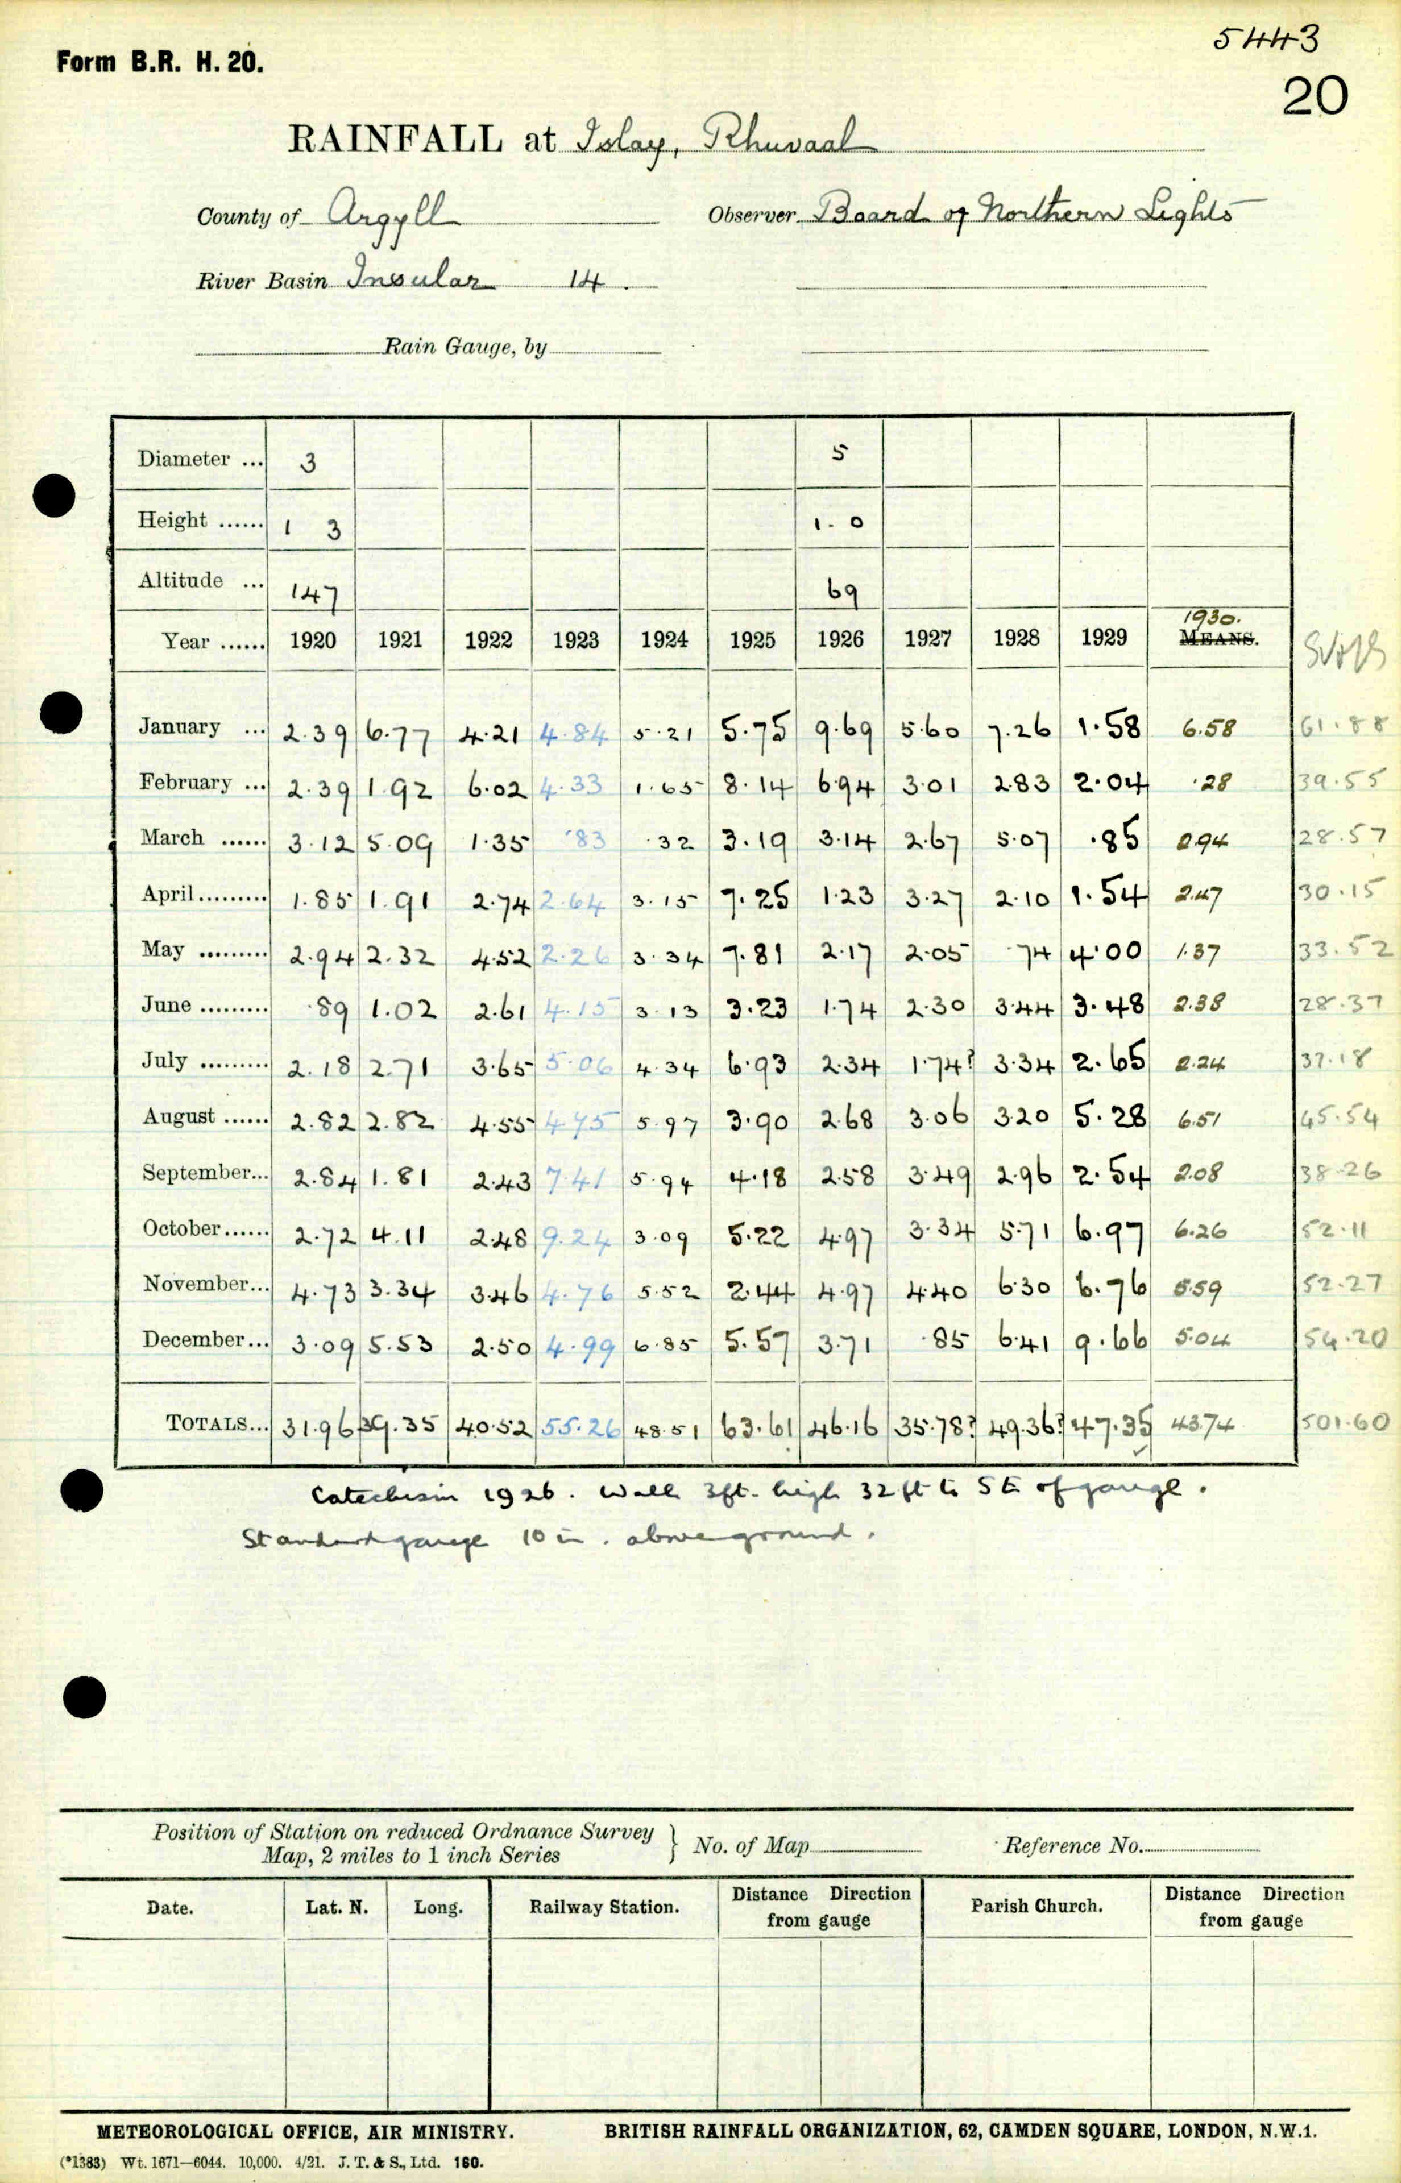 5443
Form B.R. H. 20.
20
RAINFALL at Islay, Rhuvaal
County of Argyll Observer Board of Northern Lights
River Basin Insular 14.
Rain Gauge, by
Diameter ... 3 5
Height ...... 1 3 1-0
Altitude ... 147 69
1930.
Year ...... 1920 1921 1922 1923 1924 1925 1926 1927 1928 1929 MEANS.
January ... 2.39 6.77 4.21 4.84 5.21 5.75 9.69 5.60 7.26 1.58 6.58 61.88
February ... 2.39 1.92 6.02 4.33 1.65 8.14 6.94 3.01 2.83 2.04 .28 39.55
March ...... 3.12 5.09 1.35 .83 .32 3.19 3.14 2.67 5.07 .85 2.94 28.57
April......... 1.85 1.91 2.74 2.64 3.15 7.25 1.23 3.27 2.10 1.54 2.47 30.15
May ......... 2.94 2.32 4.52 2.26 3.34 7.81 2.17 2.05 .74 4.00 1.37 33.52
June ......... .89 1.02 2.61 4.15 3.13 3.23 1.74 2.30 3.44 3.48 2.38 28.37
July ......... 2.18 2.71 3.65 5.06 4.34 6.93 2.34 1.74? 3.34 2.65 2.24 37.18
August ...... 2.82 2.82 4.55 4.75 5.97 3.90 2.68 3.06 3.20 5.28 6.51 45.54
September... 2.84 1.81 2.43 7.41 5.94 4.18 2.58 3.49 2.96 2.54 2.08 38.26
October...... 2.72 4.11 2.48 9.24 3.09 5.22 4.97 3.34 5.71 6.97 6.26 52.11
November... 4.73 3.34 3.46 4.76 5.52 2.44 4.97 4.40 6.30 6.76 5.59 52.27
December... 3.09 5.53 2.50 4.99 6.85 5.57 3.71 .85 6.41 9.66 5.04 54.20
TOTALS... 31.96 39.35 40.52 55.26 48.51 63.61 46.16 35.78? 49.36? 47.35 43.74 501.60
Catechism 1926. Wall 3ft. high 32 ft to SE of gauge.
Standard gauge 10 in. above ground.
Position of Station on reduced Ordnance Survey
Map, 2 miles to 1 inch Series } No. of Map Reference No.
Date. Lat. N. Long. Railway Station. Distance Direction from gauge Parish Church. Distance Direction from gauge
METEOROLOGICAL OFFICE, AIR MINISTRY. BRITISH RAINFALL ORGANIZATION, 62, CAMDEN SQUARE, LONDON, N.W.1.
(*1383) Wt. 1671—6044. 10,000. 4/21. J. T. & S., Ltd. 160.